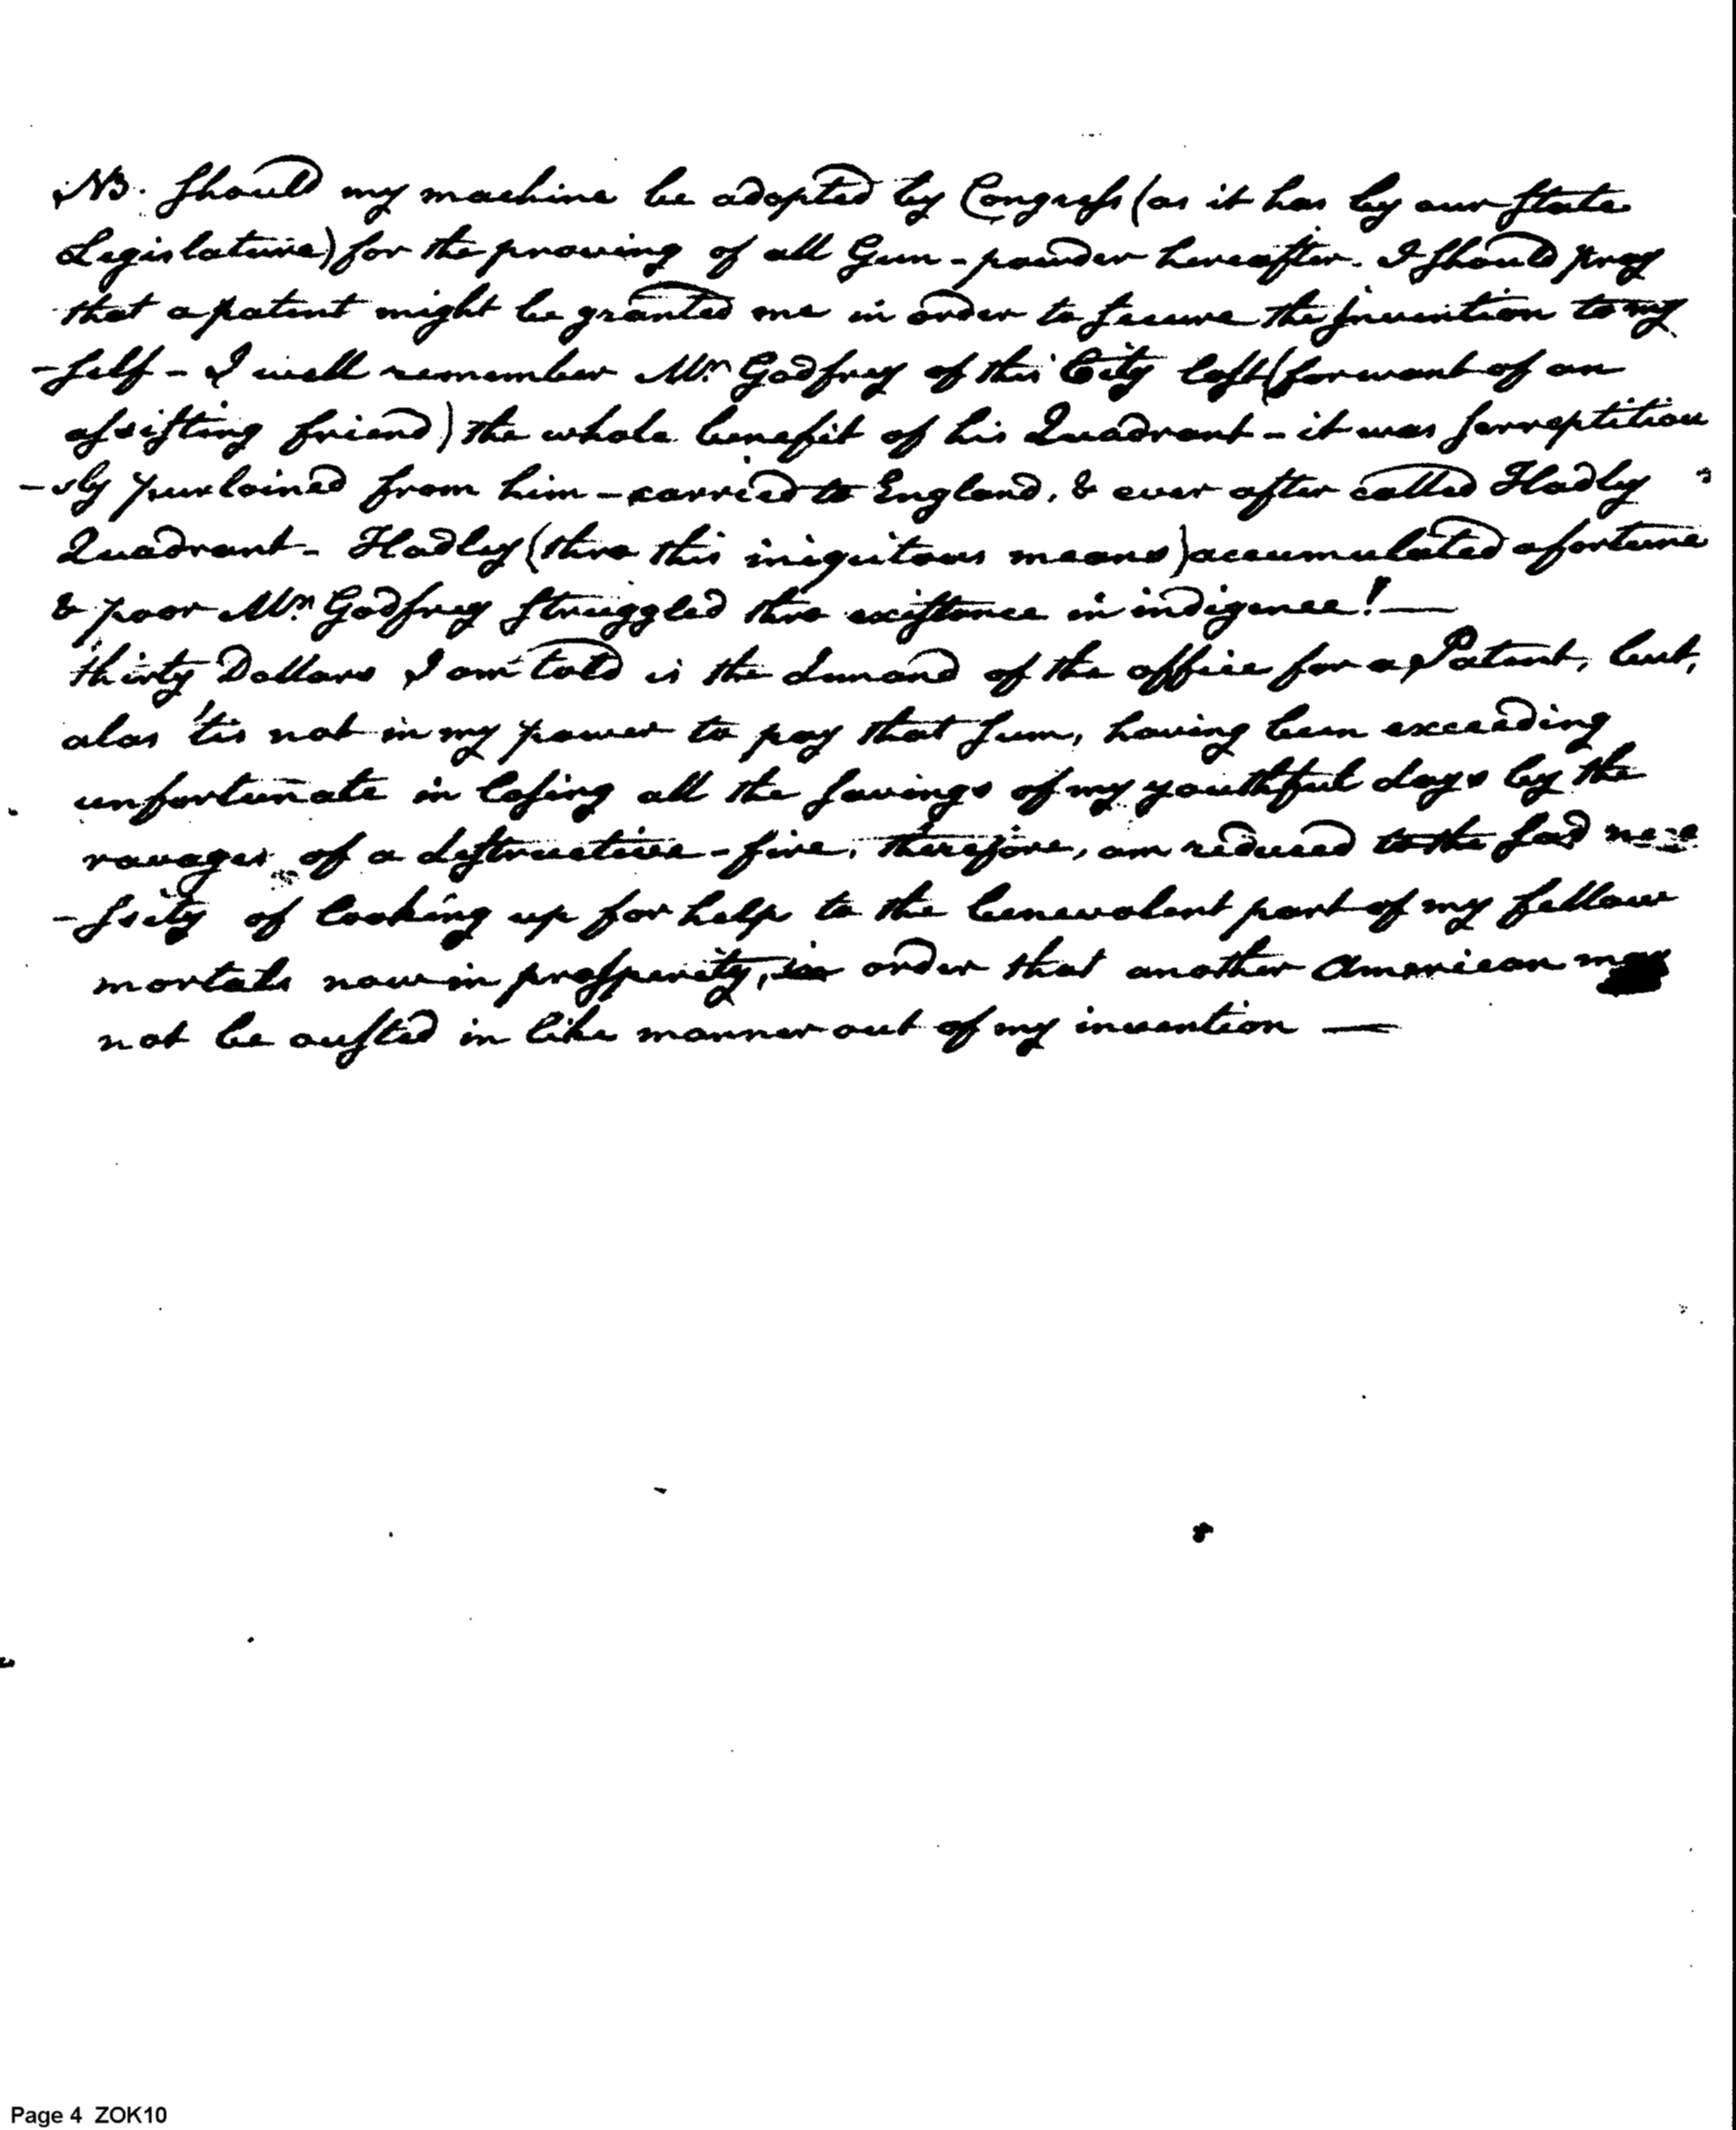 NB. Should my machine be adopted by Congress (as it has by our State
Legislature) for the proving of all Gun-powder hereafter. I Should pray
that a patent might be granted me in order to secure the Invention to my
-self - I well remember Mr. Godfrey of this City lost (for want of an
assisting friend) the whole benefit of his Quadrant - it was surreptitiou
-sly purloined from him - carried to England, & ever after called Hadly
Quadrant - Hadley (thro this iniquitous means) accumulated a fortune
& poor Mr. Godfrey struggled thro existance in indigence! —
thirty Dollars I am told is the demand of the office for a Patent, but,
alas 'tis not in my power to pay that Sum, having been exceeding
unfortunate in losing all the savings of my youthful days by the
ravages of a destructive-fire, therefore, am reduced to the sad nece
-ssity of looking up for help to the benevolent part of my fellow
mortals now in prosperity, in order that another American may
not be ousted in like manner out of my invention —
Page 4 ZOK10